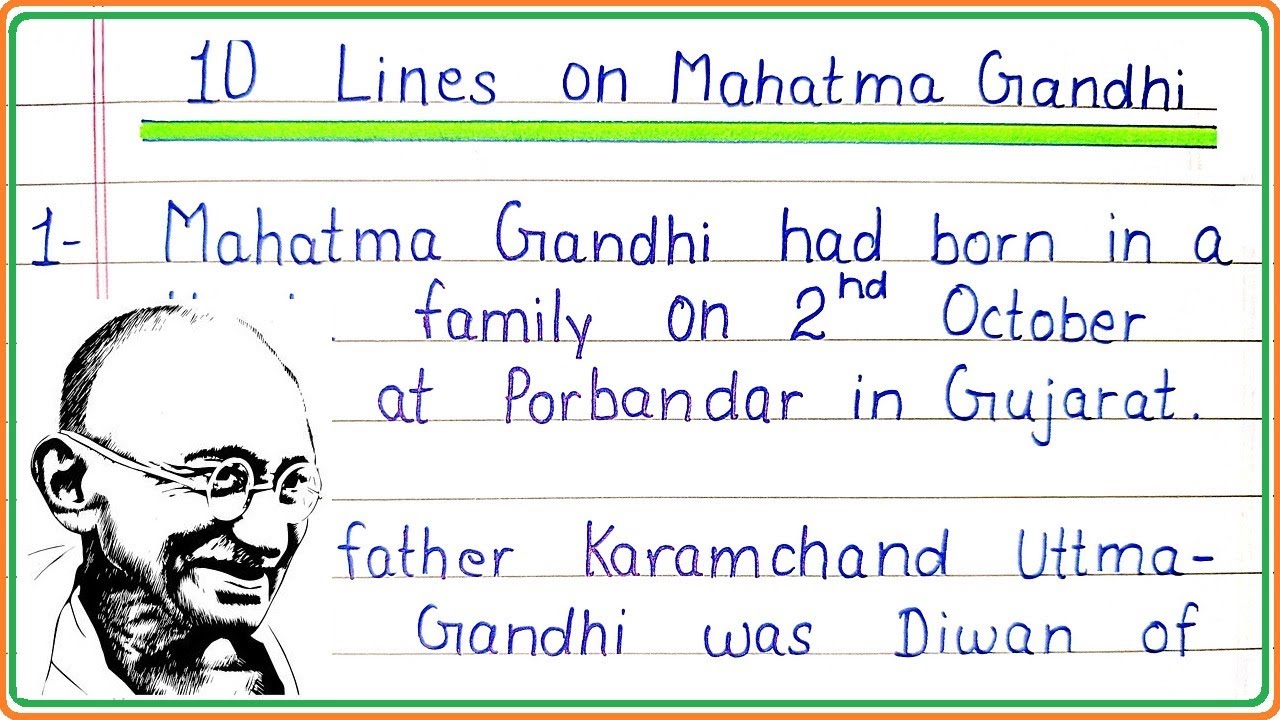 10 Lines on Mahatma Gandhi
1- Mahatma Gandhi had born in a
family on 2nd October
at Porbandar in Gujarat.
father Karamchand Uttma-
Gandhi was Diwan of